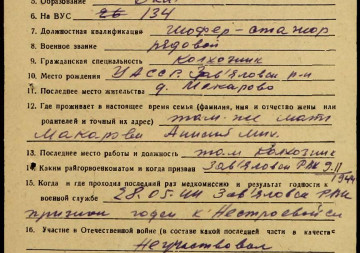 5. Образование
6. На ВУС № 26/134
7. Должностная квалификация шофер-стажор
8. Военное звание рядовой
9. Гражданская специальность Колхозник
10. Место рождения УАССР Зав'яловск р-н
11. Последнее место жительства д. Макарово
12. Где проживает в настоящее время семья (фамилия, имя и отчество жены или
родителей и точный их адрес) там-же мать
Макарови Анисия Мих.
13. Последнее место работы и должность там Колхозник
14. Каким райгорвоенкоматом и когда призван Зав'яловск РВК 9.II
1944
15. Когда и где проходил последний раз медкомиссию и результат годности к
военной службе 28.05.44 Зав'яловск РВК
признан годен к Нестроевой сл
16. Участие в Отечественной войне (в составе какой последней части в качестве
Неучаствовал